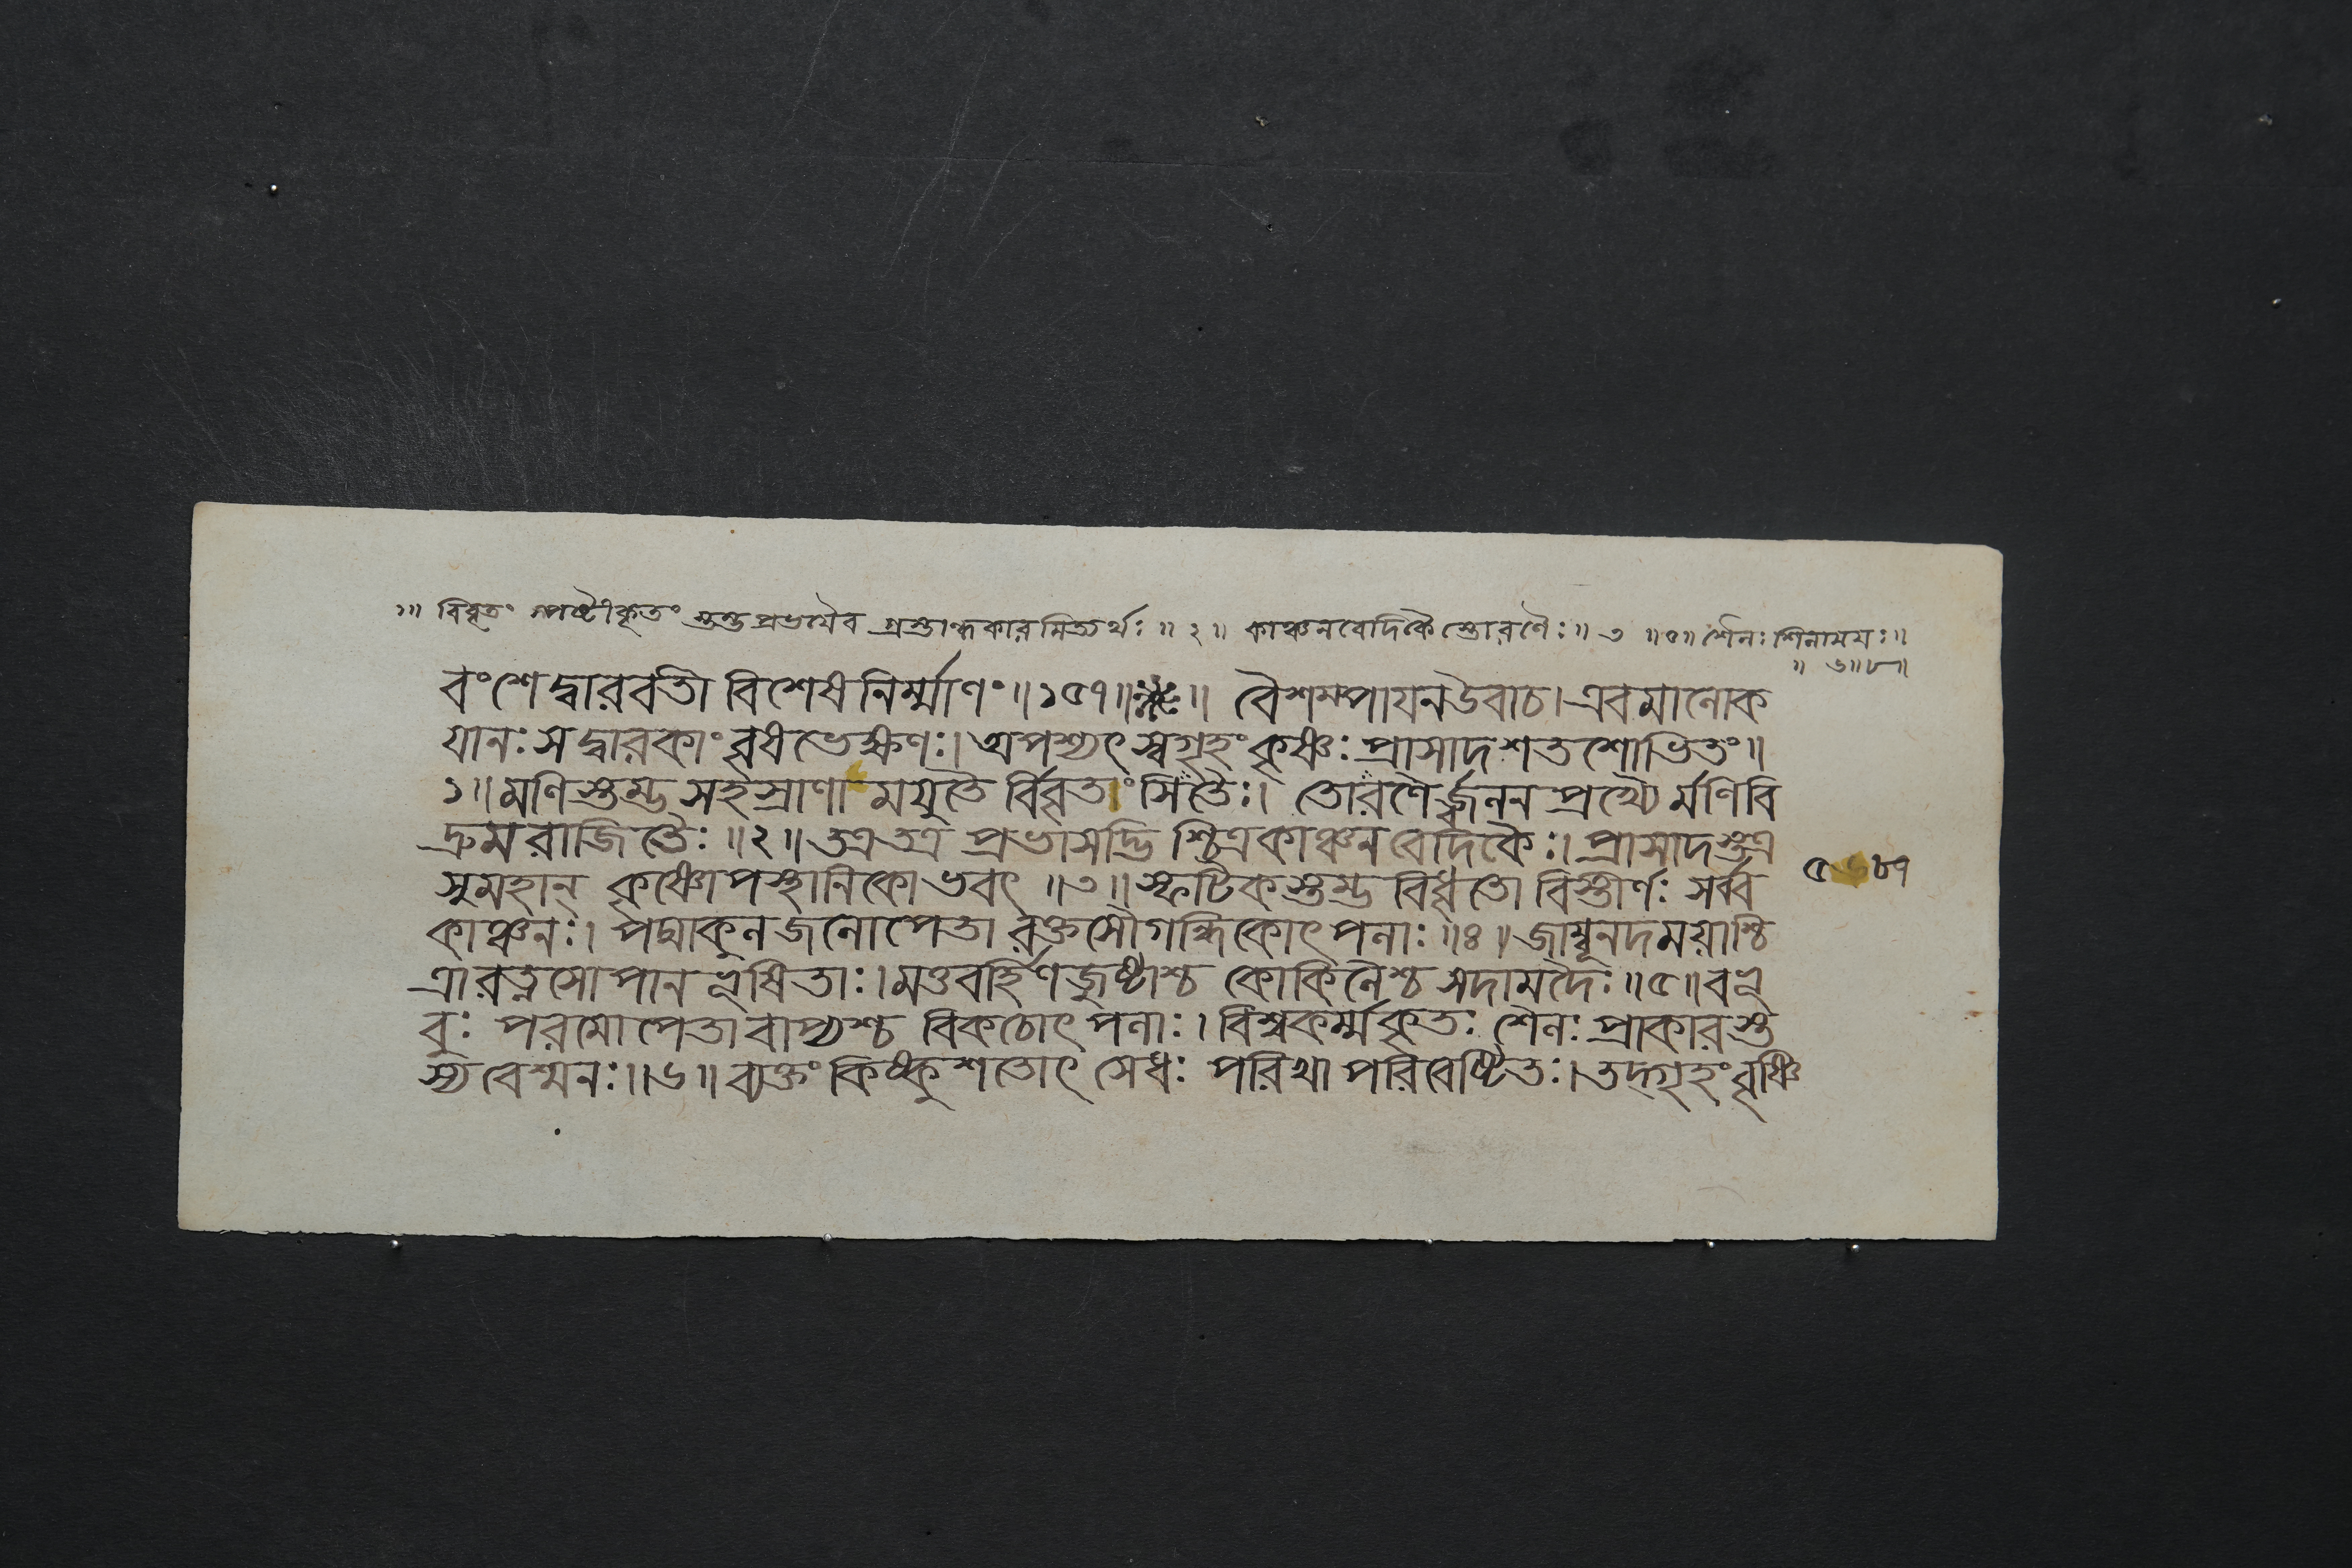 ১॥ বিবৃতং স্পষ্টীকৃতং স্তম্ভপ্রভযৈব গ্রস্তান্ধকারমিত্যর্থঃ ॥ ২॥ কাঞ্চনবেদিকৈস্তোরণৈঃ॥ ৩ ॥৫॥ শৈলঃ শিলাময়ঃ॥
॥ ৬॥৮॥
বংশে দ্বারবতী বিশেষনির্ম্মাণং॥১৫৭॥ ॥ বৈশম্পাযন উবাচ। এবমালোক
যানঃ স দ্বারকাং বৃষভেক্ষণঃ। অপশ্যৎ স্বগৃহং কৃষ্ণঃ প্রাসাদশতশোভিতং॥
১॥ মণিস্তম্ভসহস্রাণামযুতৈর্বিবৃতাং সিতৈঃ। তোরণৈর্জ্বলনপ্রখ্যৈর্মণিবি
দ্রুমরাজিতৈঃ ॥২॥ তত্র তত্র প্রভাসদ্ভিশ্চিত্রকাঞ্চনবেদিকৈঃ। প্রাসাদস্তত্র
সুমহান্ কৃষ্ণোপস্থানিকোভবৎ ॥৩॥ স্ফটিকস্তম্ভবিধৃতো বিস্তীর্ণঃ সর্ব্ব
কাঞ্চনঃ। পদ্মাকুলজলোপেতা রক্তসৌগন্ধিকোৎপলাঃ ॥৪॥ জাম্বূনদময়াশ্চি
ত্রা রত্নসোপানভূষিতাঃ। মত্তবর্হিণজুষ্টাশ্চ কোকিলৈশ্চ সদামদৈঃ ॥৫॥ বভূ
বুঃ পরমোপেতা বাপ্যশ্চ বিকচোৎপলাঃ। বিশ্বকর্ম্মকৃতঃ শৈলঃ প্রাকারস্ত
স্য বেশ্মনঃ॥৬॥ ব্যক্তং কিষ্কুশতোৎসেধঃ পরিখাপরিবেষ্টিতঃ। তদ্গৃহং বৃষ্ণি